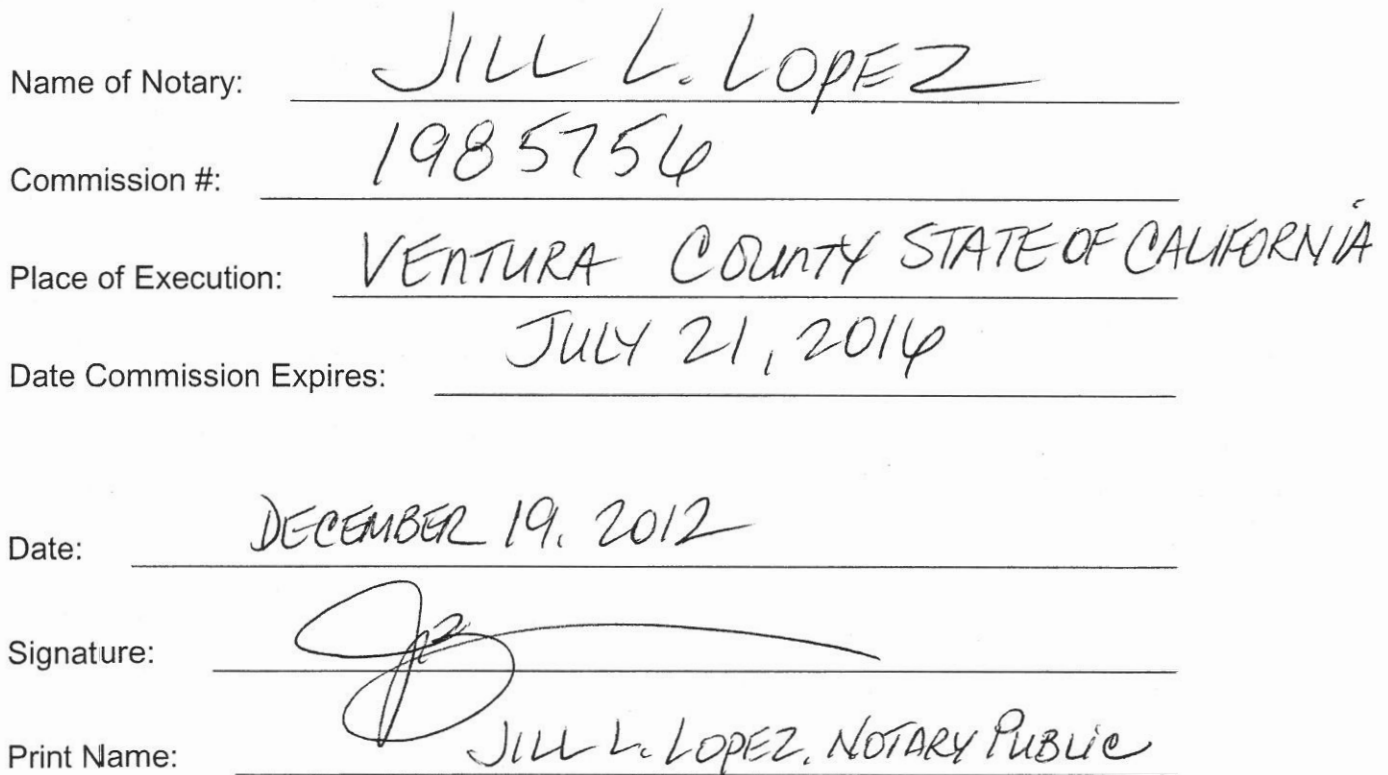 Name of Notary: JILL L. LOPEZ
Commission #: 1985756
Place of Execution: VENTURA COUNTY STATE OF CALIFORNIA
Date Commission Expires: JULY 21, 2016
Date: DECEMBER 19, 2012
Signature:
Print Name: JILL L. LOPEZ, NOTARY PUBLIC